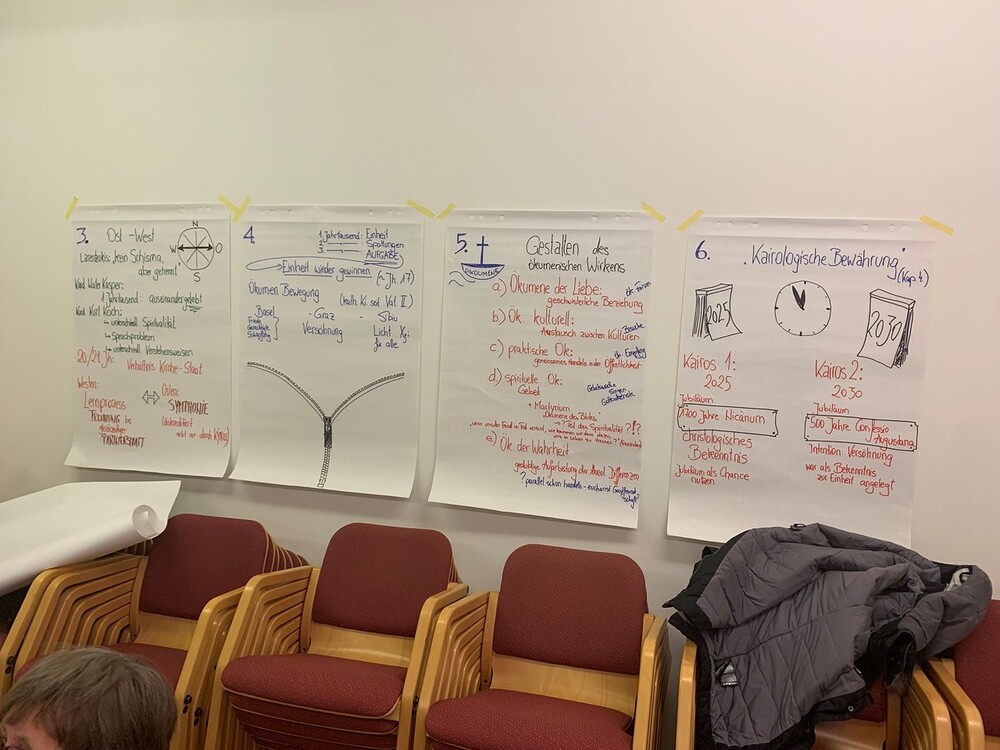 3. Ost - West
N
W O
S
kein Schisma,
aber getrennt
Kard. Walter Kasper:
1. Jahrtausend: auseinandergelebt
Kard. Kurt Koch:
→ unterschiedl. Spiritualität
→ Sprachproblem
→ unterschiedl. Verstehensweisen
20/21. Jh. Verhältnis Kirche - Staat
Westen: Osten:
Lernprozess SYMPHONIE
TRENNUNG bei
gleichzeitiger
PARTNERSCHAFT
4.
1. Jahrtausend: Einheit
2. Spaltungen
3. AUFGABE
Einheit wieder gewinnen (~ Jh. 17)
Ökumen. Bewegung (kath. Ki. seit Vat. II)
Basel - Graz - Sibiu
Versöhnung
Licht
für alle
5.
ÖKUMENE
Gestalten des
ökumenischen Wirkens
a) Ökumene der Liebe:
geschwisterliche Beziehung
b) Ök. kulturell:
Austausch zwischen Kulturen
Besuche
c) praktische Ök:
gemeinsames Handeln in der Öffentlichkeit
d) spirituelle Ök:
Gebet
+ Martyrium
"Ökumene des Blutes"
→ ? Teil der Spiritualität ?!?
e) Ök. der Wahrheit
geduldige Aufarbeitung der Differenzen
? parallel schon handeln - eucharist.
6. "Kairologische Bewährung"
(Kap. 4)
2025
2030
Kairos 1: Kairos 2:
2025 2030
Jubiläum Jubiläum
1700 Jahre Nicänum 500 Jahre Confessio
Augustana
christologisches Intention: Versöhnung
Bekenntnis war als Bekenntnis
zur Einheit angelegt
Jubiläum als Chance
nutzen